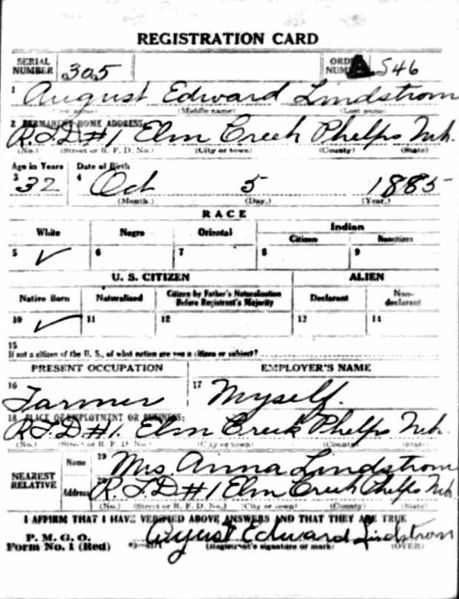 REGISTRATION CARD
SERIAL NUMBER 305 ORDER NUMBER A 546
1 August Edward Lindstrom
(Middle name) (Last name)
2 PERMANENT HOME ADDRESS:
R.F.D #1 Elm Creek Phelps Neb.
(No.) (Street or R. F. D. No.) (City or town) (County) (State)
Age in Years Date of Birth
3 32 4 Oct 5 1885
(Month.) (Day.) (Year.)
RACE
White Negro Oriental Indian
Citizen Noncitizen
5 ✓ 6 7 8 9
U. S. CITIZEN ALIEN
Native Born Naturalized Citizen by Father's Naturalization Before Registrant's Majority Declarant Non-declarant
10 ✓ 11 12 13 14
15
If not a citizen of the U. S., of what nation are you a citizen or subject?
PRESENT OCCUPATION EMPLOYER'S NAME
16 Farmer 17 Myself.
18 PLACE OF EMPLOYMENT OR BUSINESS:
R.F.D #1. Elm Creek Phelps Neb.
(No.) (Street or R. F. D. No.) (City or town) (County) (State)
NEAREST RELATIVE
Name 19 Mrs. Anna Lindstrom
Address 20 R.F.D #1 Elm Creek Phelps Neb
(No.) (Street or R. F. D. No.) (City or town) (County) (State)
I AFFIRM THAT I HAVE VERIFIED ABOVE ANSWERS AND THAT THEY ARE TRUE
P. M. G. O.
Form No. 1 (Red) August Edward Lindstrom
(Registrant's signature or mark) (OVER)